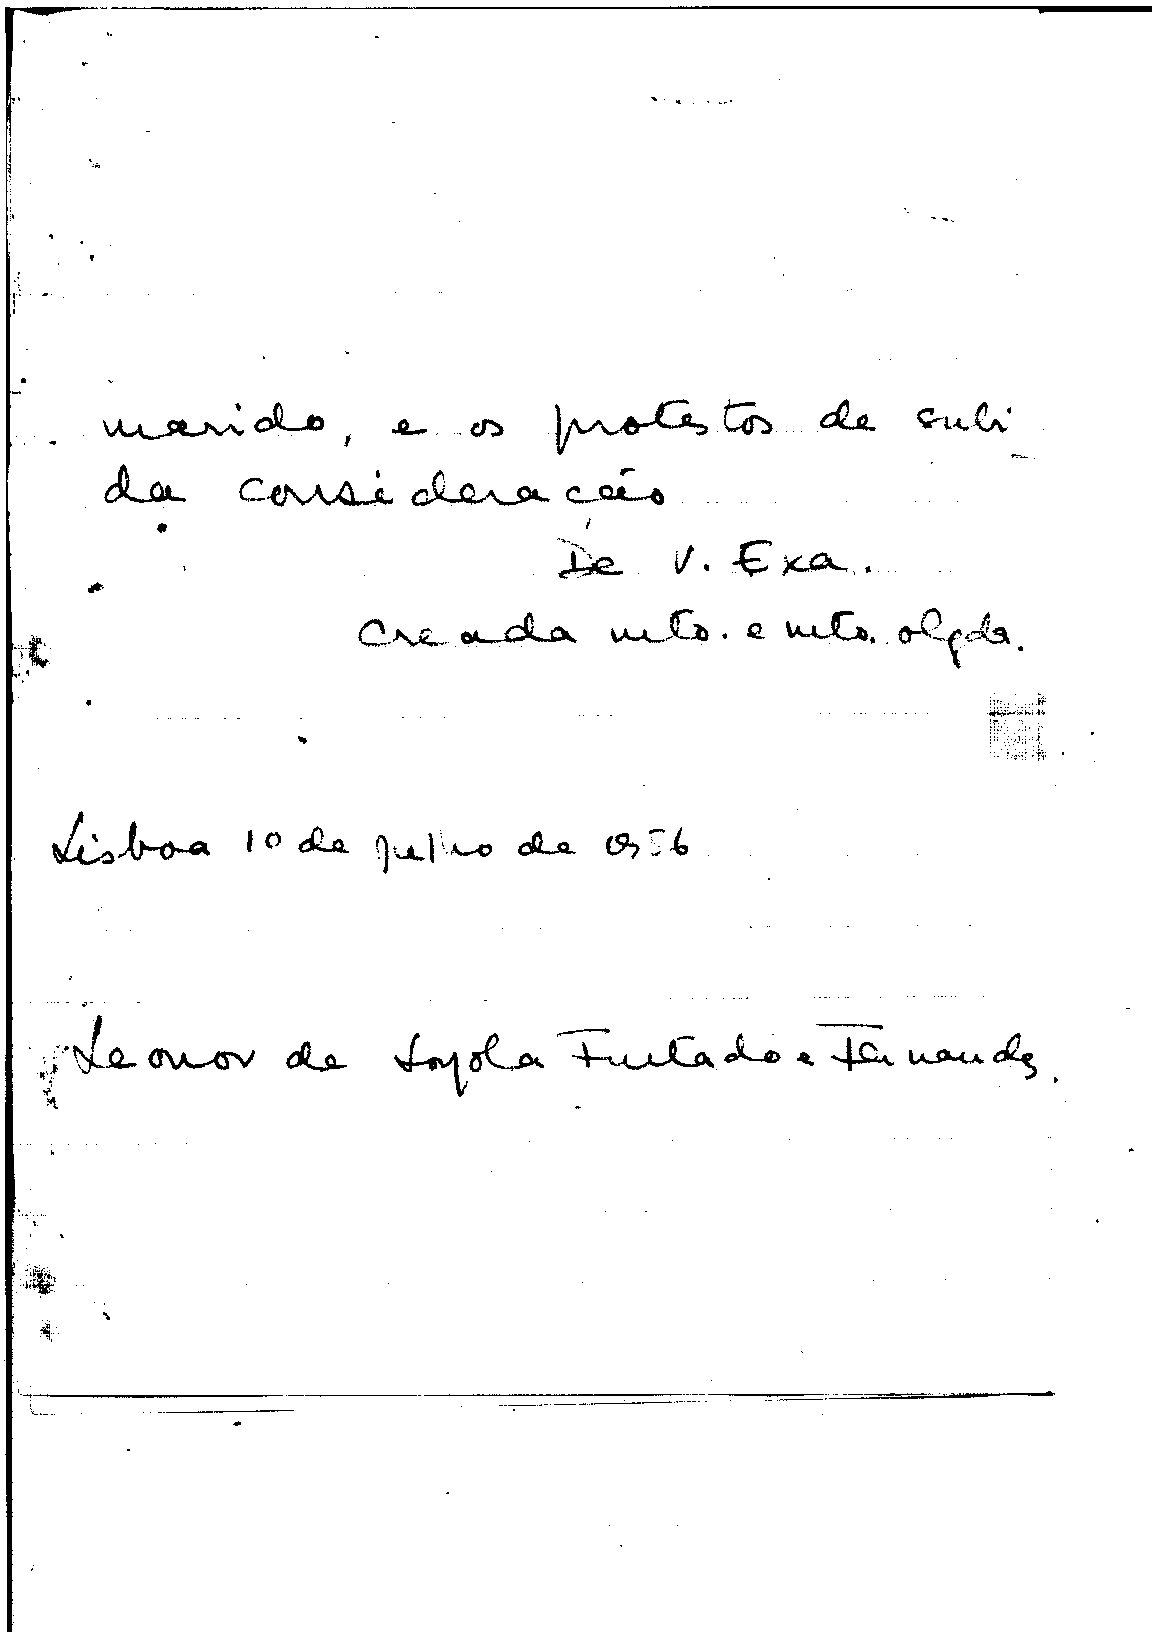 marido, e os protestos de subi
da consideração
De V. Exa.
Creada mto. e mto. obgda.
Lisboa 10 de julho de 1956
Leonor de Loyola Furtado e Fernandes.